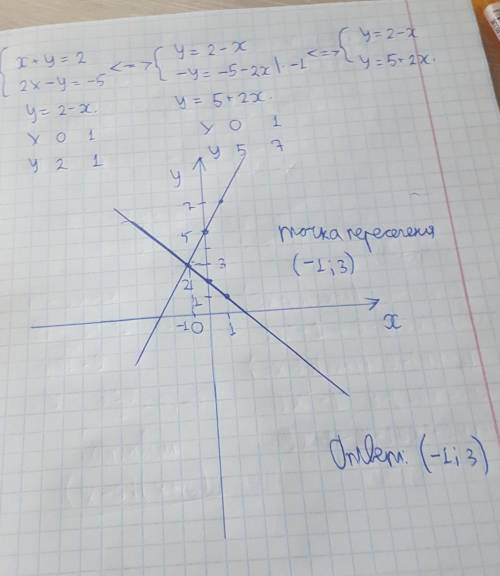 { x + y = 2 <=> { y = 2 - x <=> { y = 2 - x
2x - y = -5 -y = -5 - 2x | · -1 y = 5 + 2x.
y = 2 - x. y = 5 + 2x.
x 0 1 x 0 1
y 2 1 y 5 7
y
7
5
3
2
1
-1 0 1 x
точка пересечения
(-1; 3)
Ответ: (-1; 3)